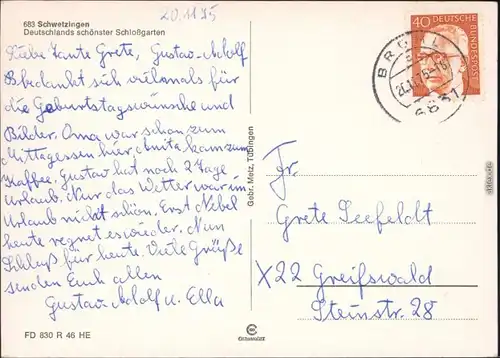 20.11.75
683 Schwetzingen
Deutschlands schönster Schloßgarten
Liebe Tante Grete, Gustav-Adolf
bedankt sich vielmals für
die Geburtstagswünsche und
Bilder. Oma war schon zum
Mittagessen hier, Anita kam zum
Kaffee. Gustav hat noch 2 Tage
Urlaub. Nur das Wetter war im
Urlaub nicht schön. Erst Nebel
heute regnet es wieder. Nun
Schluß für heute. Viele Grüße
senden Euch allen
Gustav-Adolf u. Ella
FD 830 R 46 HE
Gebr. Metz, Tübingen
40 DEUTSCHE
BUNDESPOST
BRÜHL
6831
Fr.
Grete Seefeldt
X22 Greifswald
Steinstr. 28